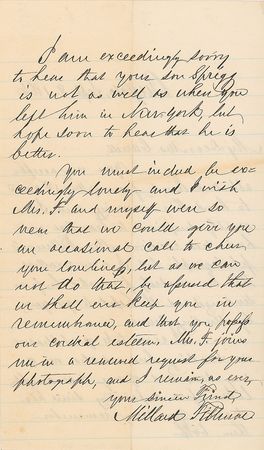 I am exceedingly sorry
to hear that your son Sprigg
is not as well as when you
left him in New-York, but
hope soon to hear that he is
better.
You must indeed, be ex-
ceedingly lonely and I wish
Mrs. F. and myself were so
near that we could give you
an occasional call to cheer
your loneliness, but as we can
not do that, be assured that
we shall ever keep you in
remembrance, and that you possess
our cordial esteem. Mrs. F. joins
me in a renewed request for your
photograph, and I remain, as ever,
your sincere Friend,
Millard Fillmore